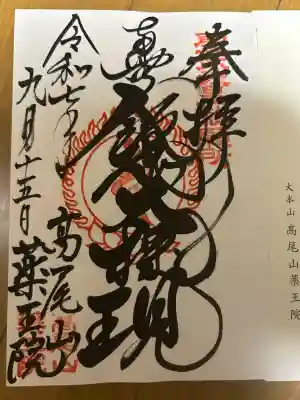 大本山 高尾山薬王院
奉拝
飯縄大権現
令和七年
九月十五日
高尾山
薬王院